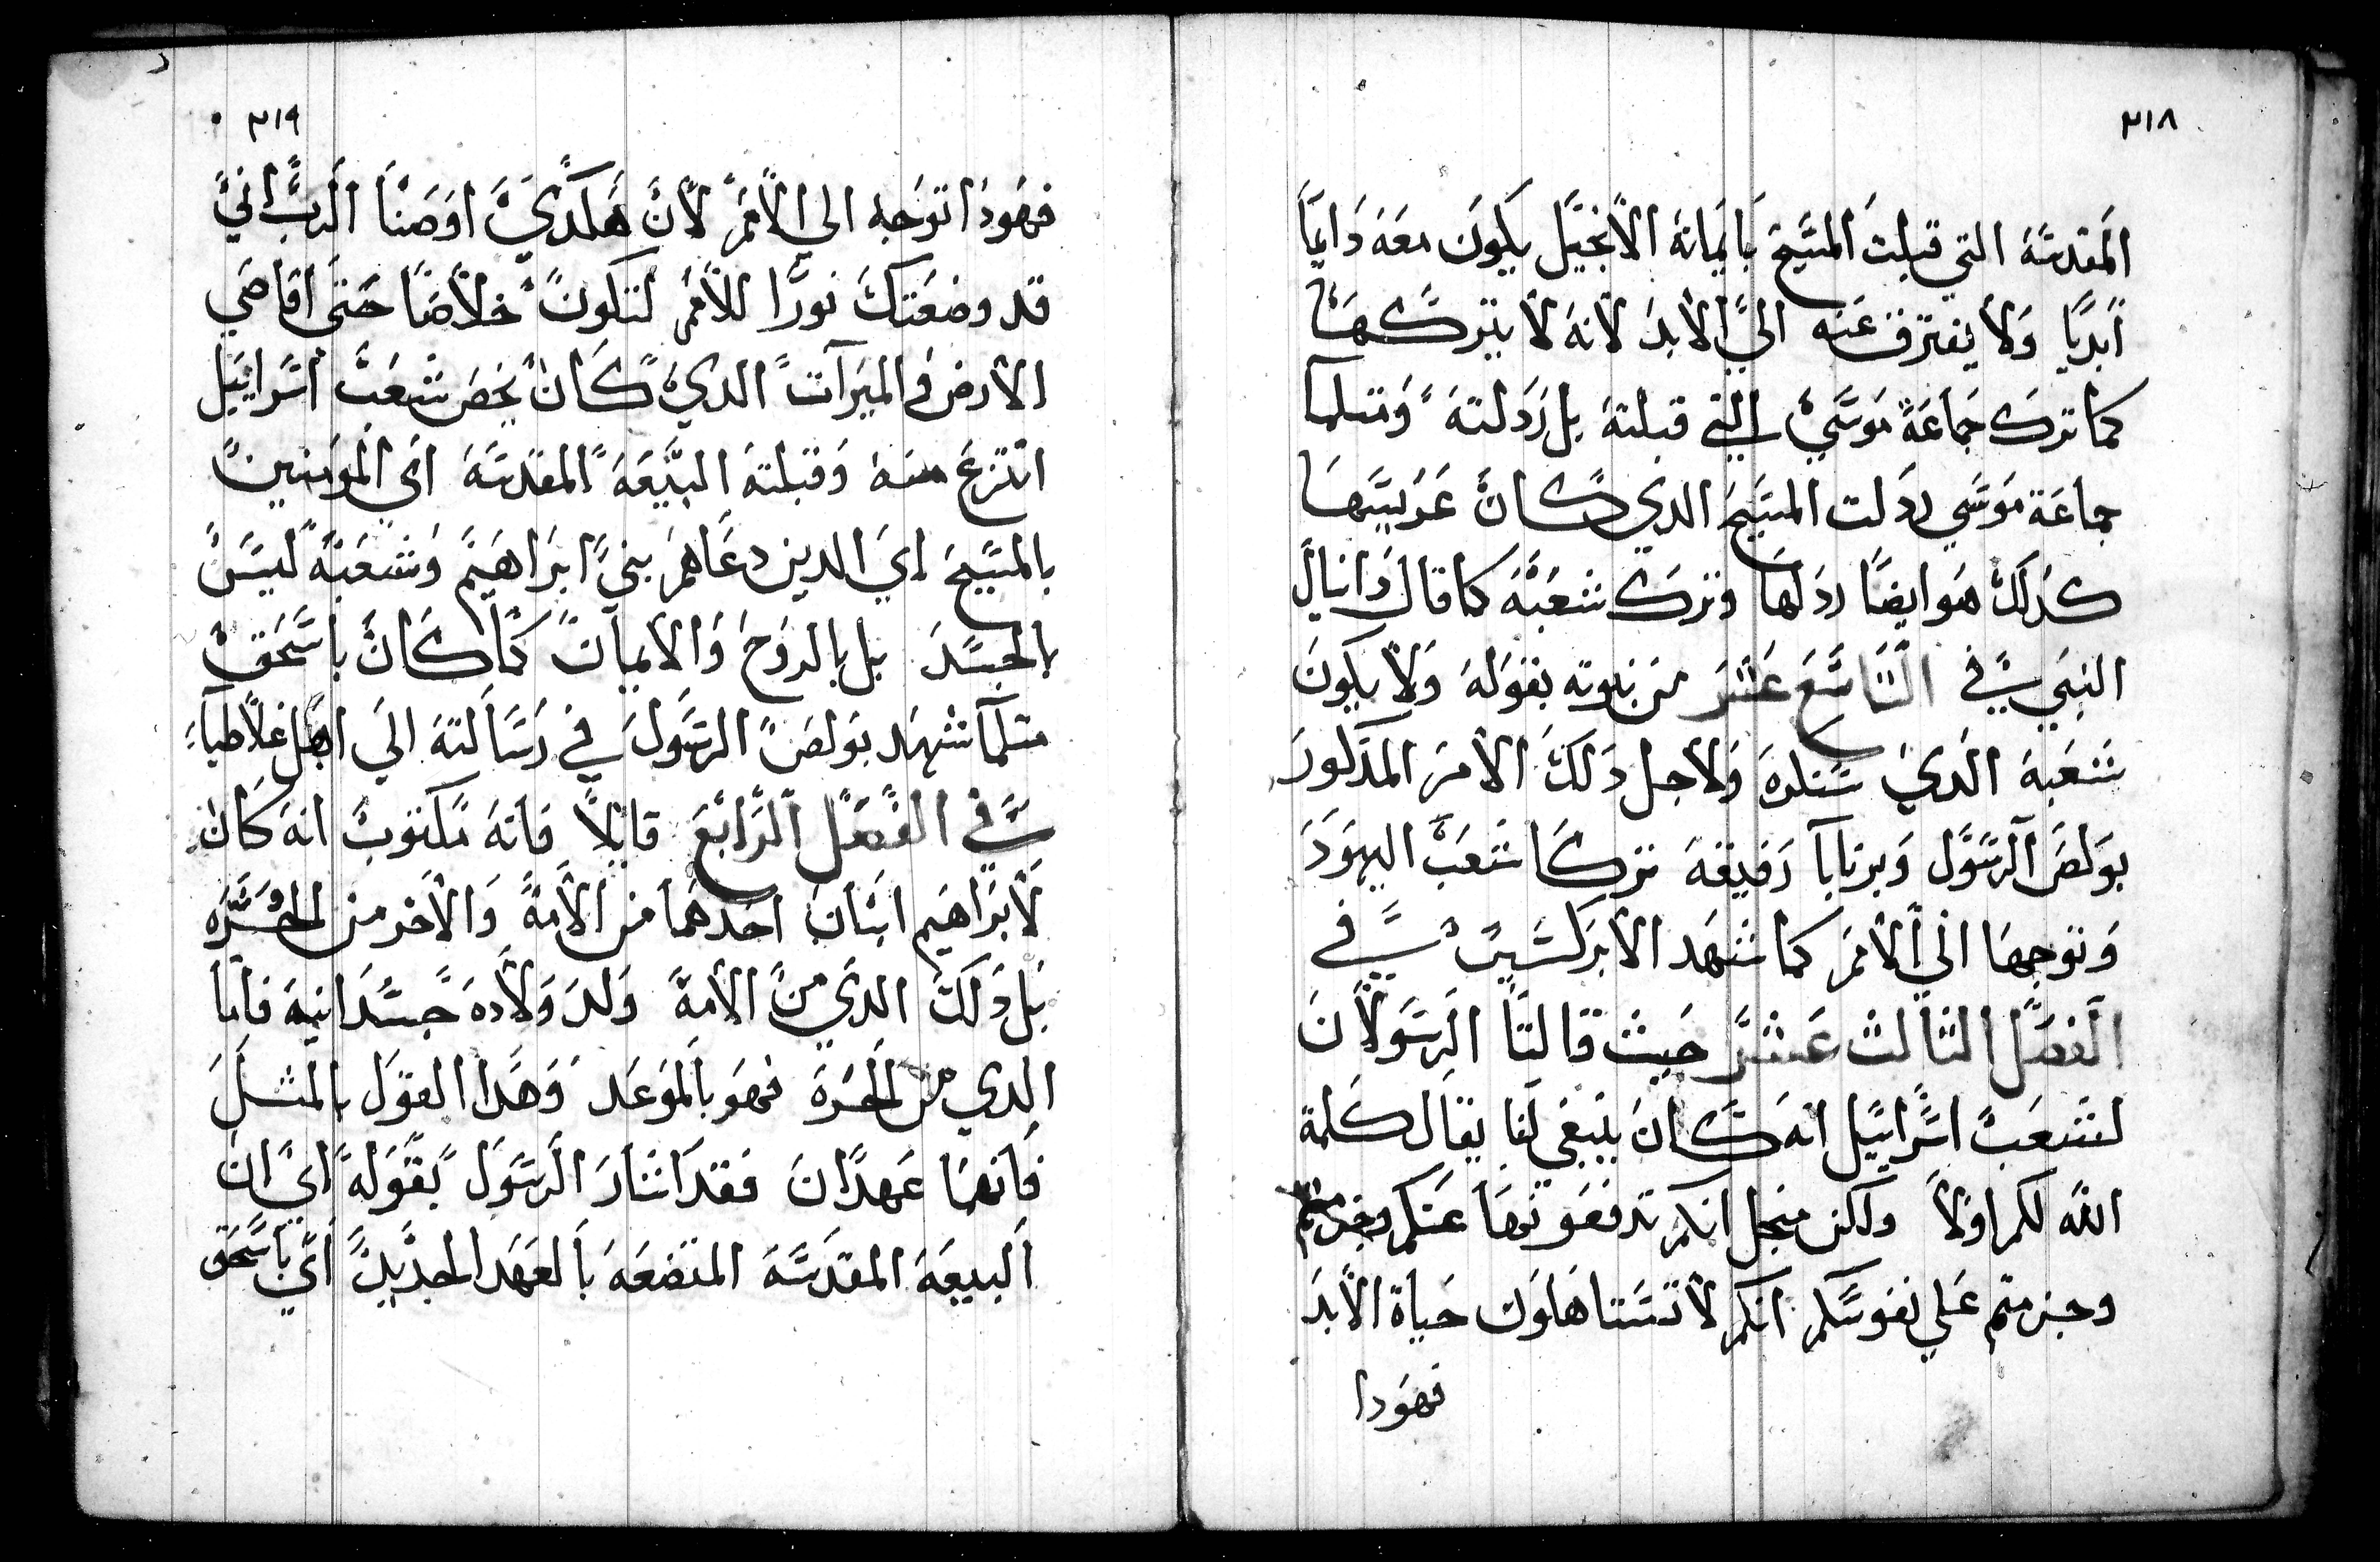 ٣١٨
المقدسة التي قبلت المسيح بايمانة الانجيل يكون معه دايما
ابديا ولا يفترق عنه الي الابد لانه لا يتركها
كما ترك جماعة موسي التي قبلته بل ردلته ومتلما
جماعة موسي ردلت المسيح الدي كان عربيسها
كدلك هو ايضا ردلها وترك شعبه كما قال دانيال
النبي في التاسع عشر من نبوته بقوله ولا يكون
شعبه الدي سنكره ولاجل دلك الامر المدكور
بولص الرسول وبرنابا رفيقه تركا شعب اليهود
وتوجها الي الامم كما شهد الابركسيس في
الفصل الثالث عشر حيث قالتا الرسولان
لشعب اسراييل انه كان ينبغي لنا يقال كلمة
الله لكم اولا ولكن منجل انكم تدفعونها عنكم وجزمتم
وجزمتم علي نفوسكم انكم لا تستاهلون حياة الابد
فهودا
٣١٩
فهودا نتوجه الي الامم لان هكدي اوصنا الرب اني
قد وضعتك نورا للامم لتكون خلاصا حتي اقاصي
الارض في الميرات الدي كان يخص شعب اسراييل
انتزع منه وقبلته البيعه المقدسه اي المومنين
بالمسيح اي الدين دعاهم بني ابراهيم وشعبه ليس
بالجسد بل بالروح والايمان كما كان باسحق
متلما شهد بولص الرسول في رسالته الي اهل غلاطيا
في الفصل الرابع قايلا فانه مكتوب انه كان
لابراهيم ابنان احدهما من الامة والاخر من الحره
بل دلك الدي من الامة ولد ولاده جسدانيه فاما
الدي من الحره فهو بالموعد وهدا القول بالمثل
فانهما عهدان فقد اشار الرسول بقوله اي ان
البيعه المقدسه المتضعه بالعهد الجديد اي باسحق